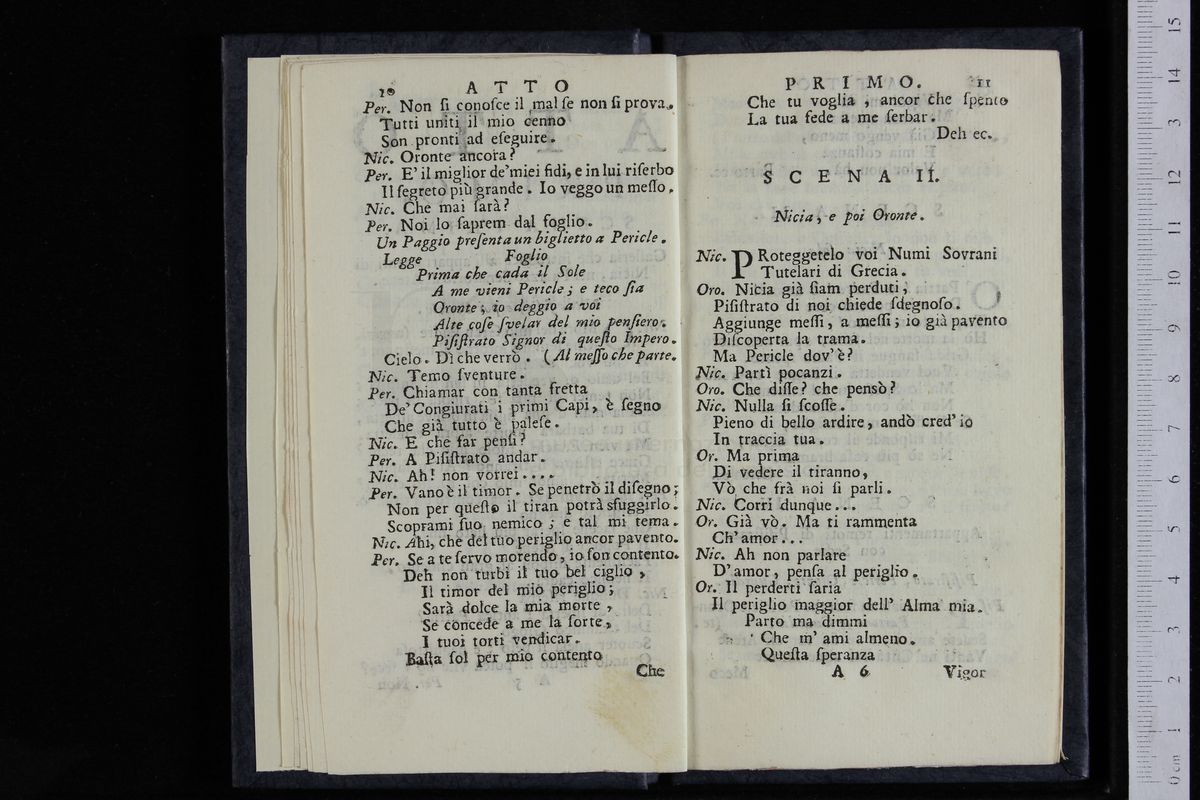 10 A T T O
Per. Non ſi conoſce il mal ſe non ſi prova.
Tutti uniti il mio cenno
Son pronti ad eſeguire.
Nic. Oronte ancora?
Per. E' il miglior de'miei fidi, e in lui riſerbo
Il ſegreto più grande. Io veggo un meſſo.
Nic. Che mai ſarà?
Per. Noi lo ſaprem dal foglio.
Un Paggio preſenta un biglietto a Pericle.
Legge Foglio
Prima che cada il Sole
A me vieni Pericle; e teco ſia
Oronte; io deggio a voi
Alte coſe ſvelar del mio penſiero.
Piſiſtrato Signor di queſto Impero.
Cielo. Dì che verrò. (Al meſſo che parte.
Nic. Temo ſventure.
Per. Chiamar con tanta fretta
De' Congiurati i primi Capi, è ſegno
Che già tutto è paleſe.
Nic. E che far penſi?
Per. A Piſiſtrato andar.
Nic. Ah! non vorrei....
Per. Vano è il timor. Se penetrò il diſegno;
Non per queſto il tiran potrà sfuggirlo.
Scoprami ſuo nemico; e tal mi tema.
Nic. Ahi, che del tuo periglio ancor pavento.
Per. Se a te ſervo morendo, io ſon contento.
Deh non turbi il tuo bel ciglio,
Il timor del mio periglio;
Sarà dolce la mia morte,
Se concede a me la ſorte,
I tuoi torti vendicar.
Baſta ſol per mio contento
Che
P R I M O. 11
Che tu voglia, ancor che ſpento
La tua fede a me ſerbar.
Deh ec.
S C E N A II.
Nicia, e poi Oronte.
Nic. PRoteggetelo voi Numi Sovrani
Tutelari di Grecia.
Oro. Nicia già ſiam perduti;
Piſiſtrato di noi chiede ſdegnoſo.
Aggiunge meſſi, a meſſi; io già pavento
Diſcoperta la trama.
Ma Pericle dov'è?
Nic. Partì pocanzi.
Oro. Che diſſe? che pensò?
Nic. Nulla ſi ſcoſſe.
Pieno di bello ardire, andò cred'io
In traccia tua.
Or. Ma prima
Di vedere il tiranno,
Vò che frà noi ſi parli.
Nic. Corri dunque...
Or. Già vò. Ma ti rammenta
Ch'amor...
Nic. Ah non parlare
D'amor, penſa al periglio.
Or. Il perderti ſaria
Il periglio maggior dell' Alma mia.
Parto ma dimmi
Che m' ami almeno.
Queſta ſperanza
A 6 Vigor
0 cm 1 2 3 4 5 6 7 8 9 10 11 12 13 14 15